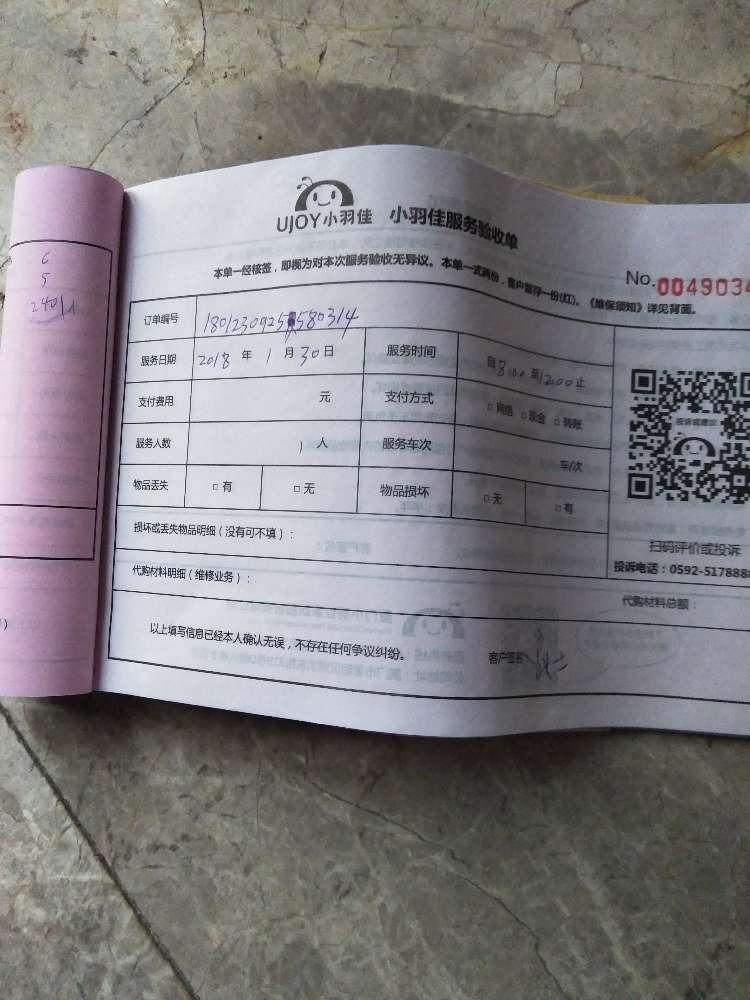 6
5
UJOY小羽佳 小羽佳服务验收单
本单一经核签，即视为对本次服务验收无异议。本单一式两份，客户留存一份(红)。《维保须知》详见背面。
No.0049034
订单编号 1801230925 580314
服务日期 2018 年 1 月 30 日 服务时间 自 8:00 至 12:00 止
支付费用 元 支付方式 □ 网络 □ 现金 □ 转账
服务人数 1 人 服务车次 车/次
物品丢失 □ 有 □ 无 物品损坏 □ 无 □ 有
投诉或建议
扫码评价或投诉
投诉电话：0592-5178888
损坏或丢失物品明细（没有可不填）：
代购材料明细（维修业务）： 代购材料总额：
以上填写信息已经本人确认无误，不存在任何争议纠纷。 客户签名